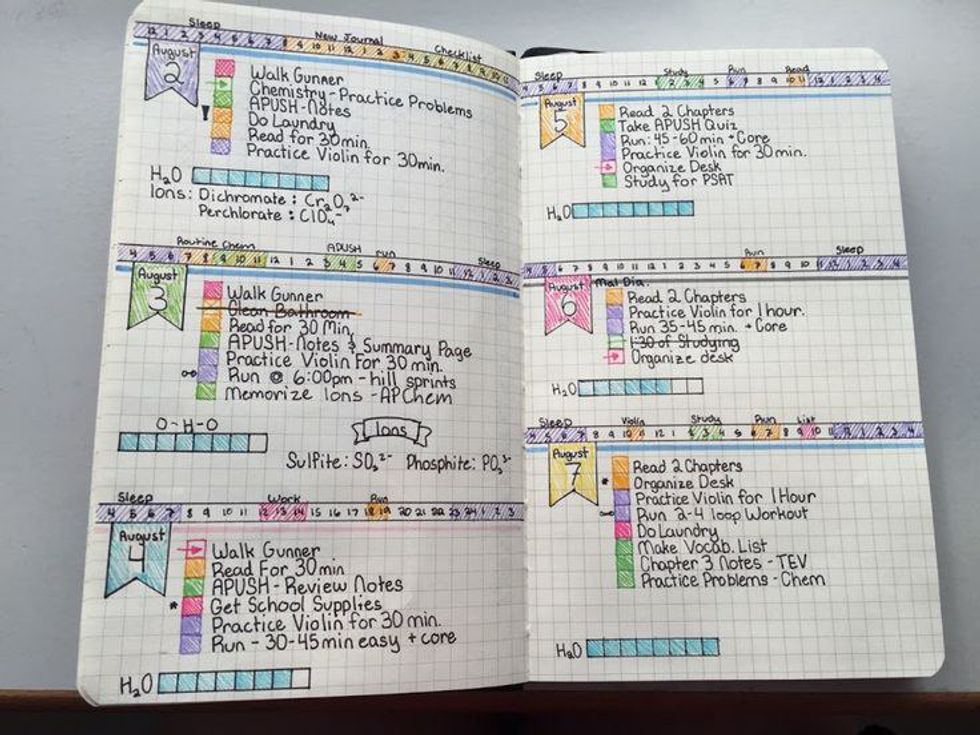 Sleep New Journal Checklist
August
2
Walk Gunner
Chemistry - Practice Problems
! APUSH-Notes
Do Laundry
Read for 30min.
Practice Violin for 30min.
H₂O
Ions: Dichromate : Cr₂O₇²⁻
Perchlorate : ClO₄⁻
Routine Chem APUSH run Sleep
4 5 6 7 8 9 10 11 12 1 2 3 4 5 6 7 8 9 10 11 12 1 2
August
3
Walk Gunner
Clean Bathroom
Read for 30 Min.
APUSH-Notes & Summary Page
Practice Violin For 30 min.
Run @ 6:00pm - hill sprints
Memorize Ions - AP Chem
O-H-O
Ions
Sulfite: SO₃²⁻ Phosphite: PO₃³⁻
Sleep Work Run
4 5 6 7 8 9 10 11 12 13 14 15 16 17 18 19 20 21 22 23 24 1 2 3
August
4
Walk Gunner
Read For 30 min
APUSH - Review Notes
* Get School Supplies
Practice Violin for 30 min.
Run - 30-45 min easy + core
H₂O
Sleep Study Run Read
4 5 6 7 8 9 10 11 12 1 2 3 4 5 6 7 8 9 10 11 12 1 2 3 4
August
5
Read 2 Chapters
Take APUSH Quiz
Run: 45-60 min + Core
Practice Violin for 30 min.
Organize Desk
Study for PSAT
H₂O
Run Sleep
4 5 6 7 8 9 10 11 12 1 2 3 4 5 6 7 8 9 10 11 12 1 2 3 4
August
6
Read 2 Chapters
Practice Violin for 1 hour.
Run 35-45 min. + Core
1:30 of Studying
Organize desk
H₂O
Sleep Violin Study Run List
4 5 6 7 8 9 10 11 12 1 2 3 4 5 6 7 8 9 10 11 12 1 2 3 4
August
7
Read 2 Chapters
* Organize Desk
Practice Violin for 1 Hour
Run 2-4 loop Workout
Do Laundry
Make Vocab. List
Chapter 3 Notes - TEV
Practice Problems - Chem
H₂O